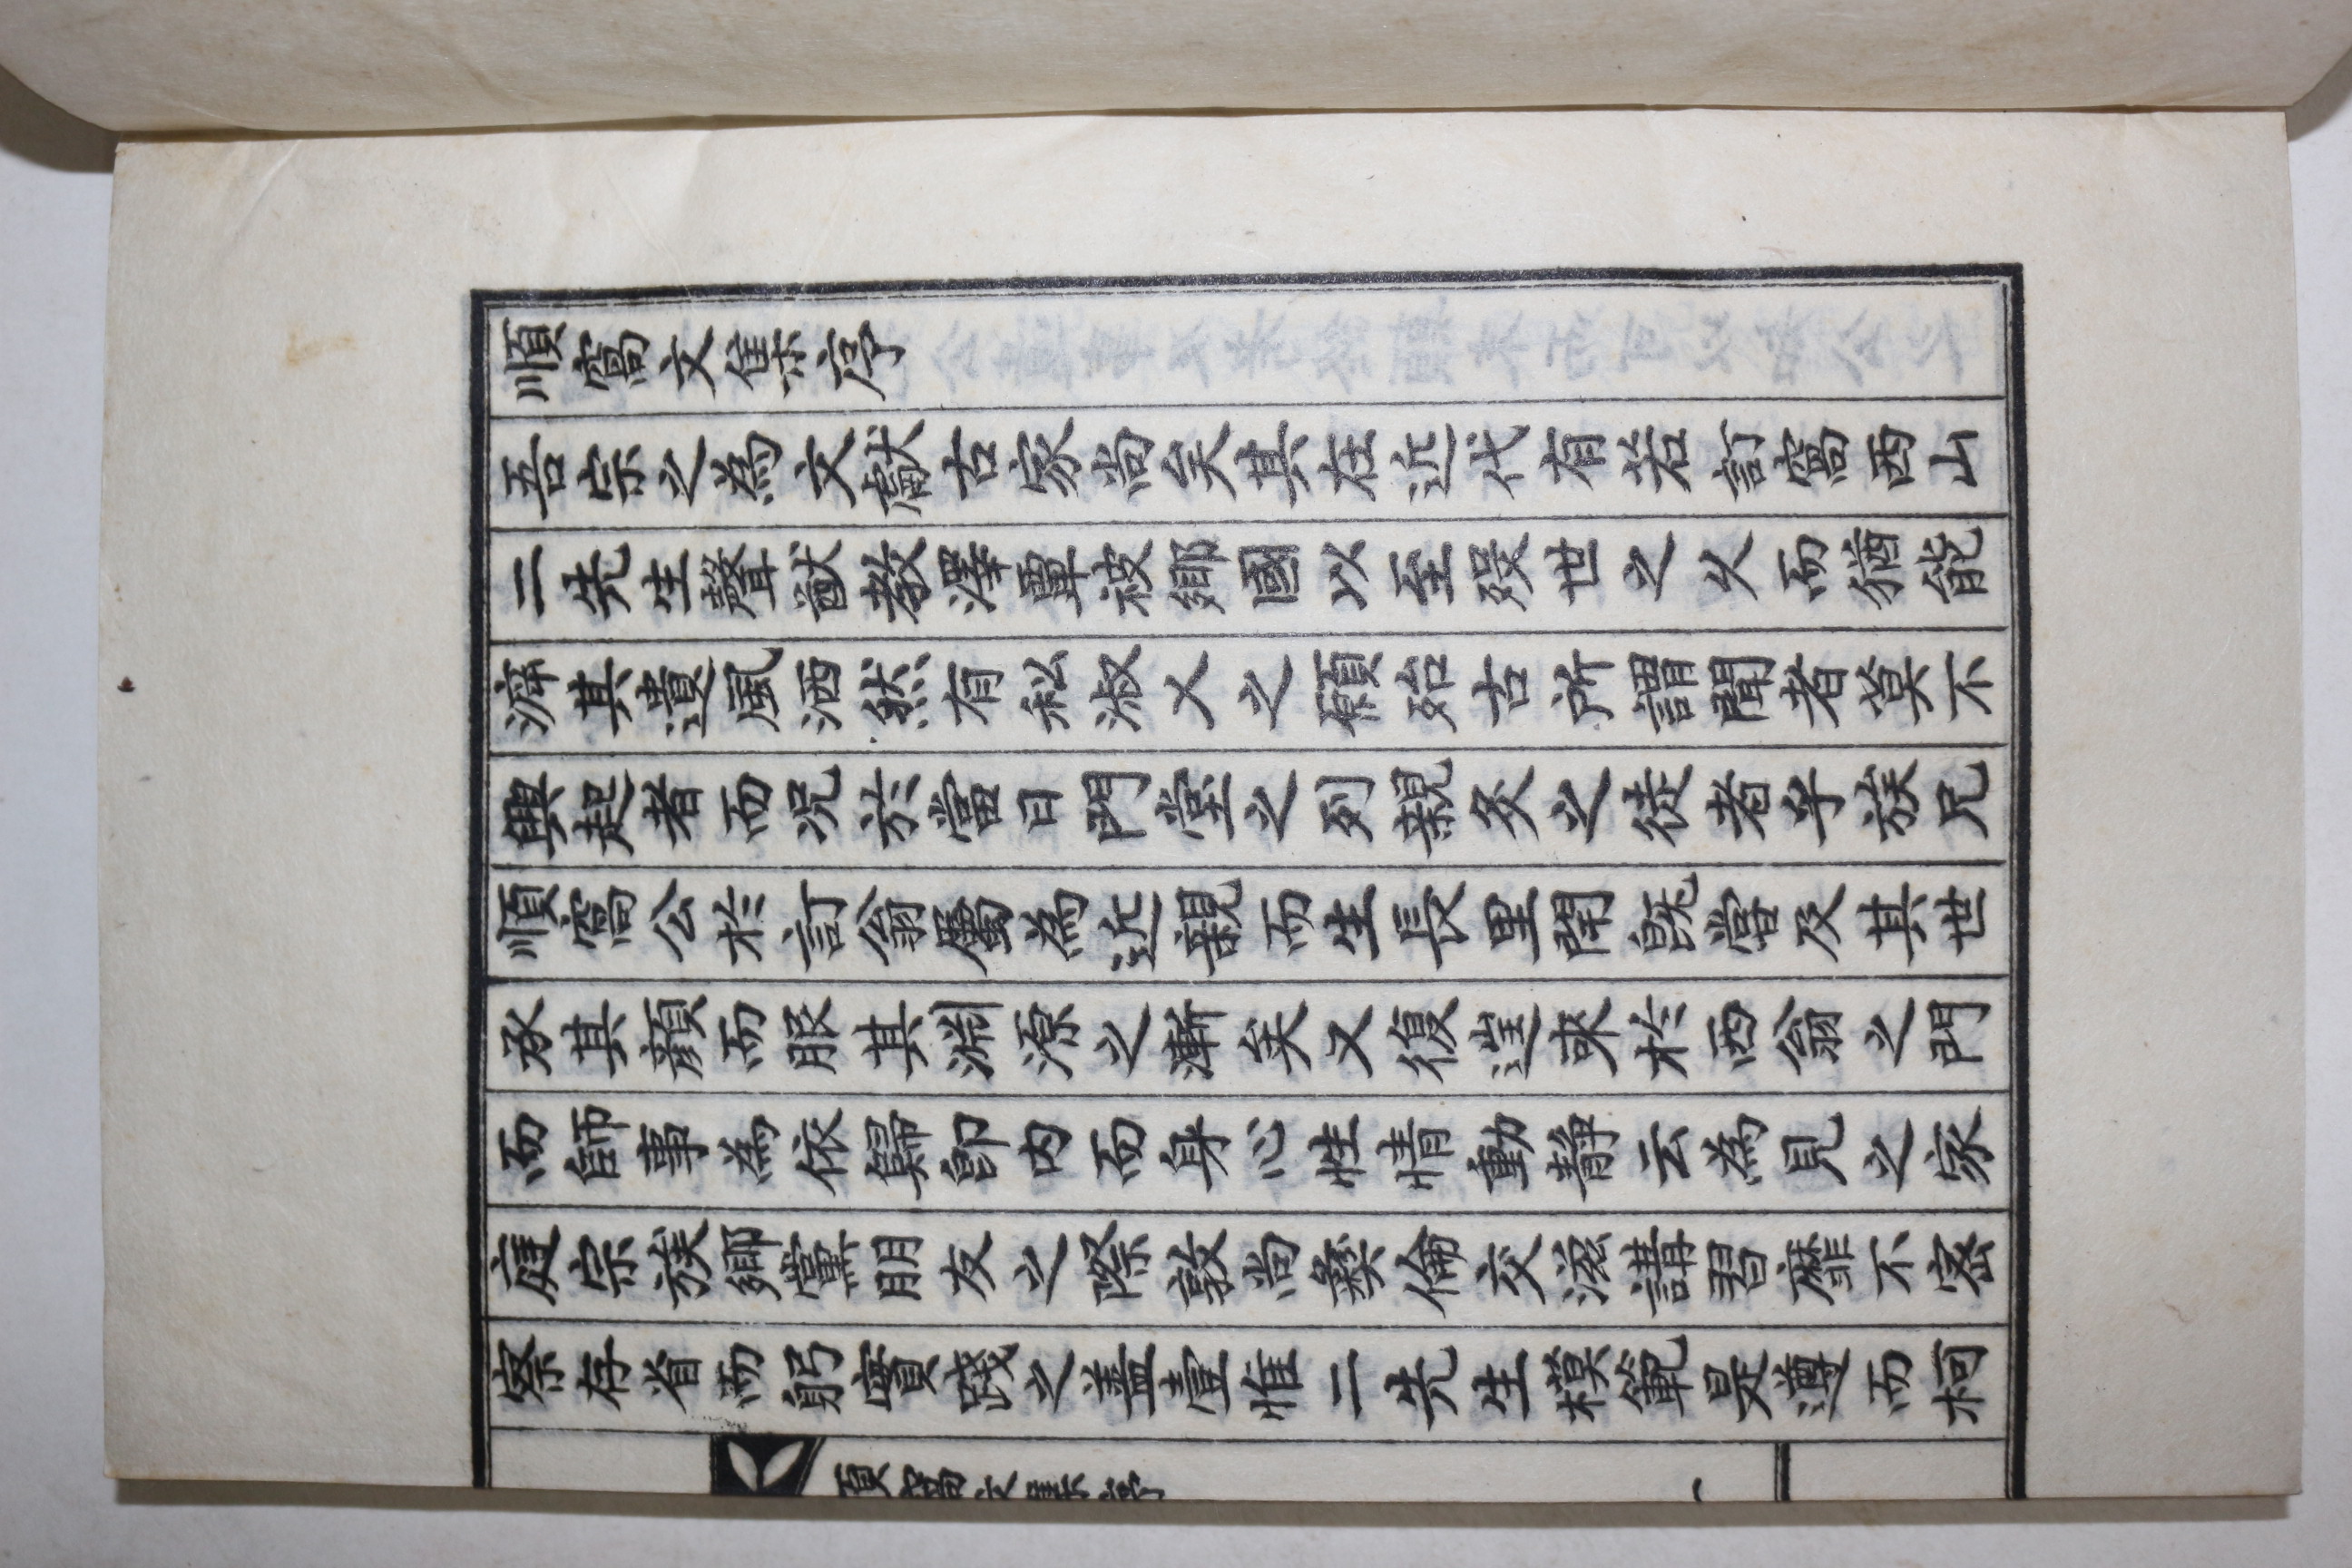 順窩文集序
吾宗之為文獻古家尚矣其在近代有若訂窩西山
二先生聲猷教澤覃被鄉國以至歿世之久而猶能
滓其遺風洒然有私淑乂之願殆古所謂聞者莫不
興起者而况於當日門堂之列親炙之徒者乎族兄
順窩公於訂翁屬為近親而生長里閈旣嘗及其世
承其顔而服其淵源之漸矣又復遑來於西翁之門
而師事為依歸卽内而身心性情動靜云為見之家
庭宗族鄉黨朋友之際敦尚彜倫交滋講習靡不密
察存省而躬實踐之盖壹惟二先生模範是遵而柯
順窩文集序
一